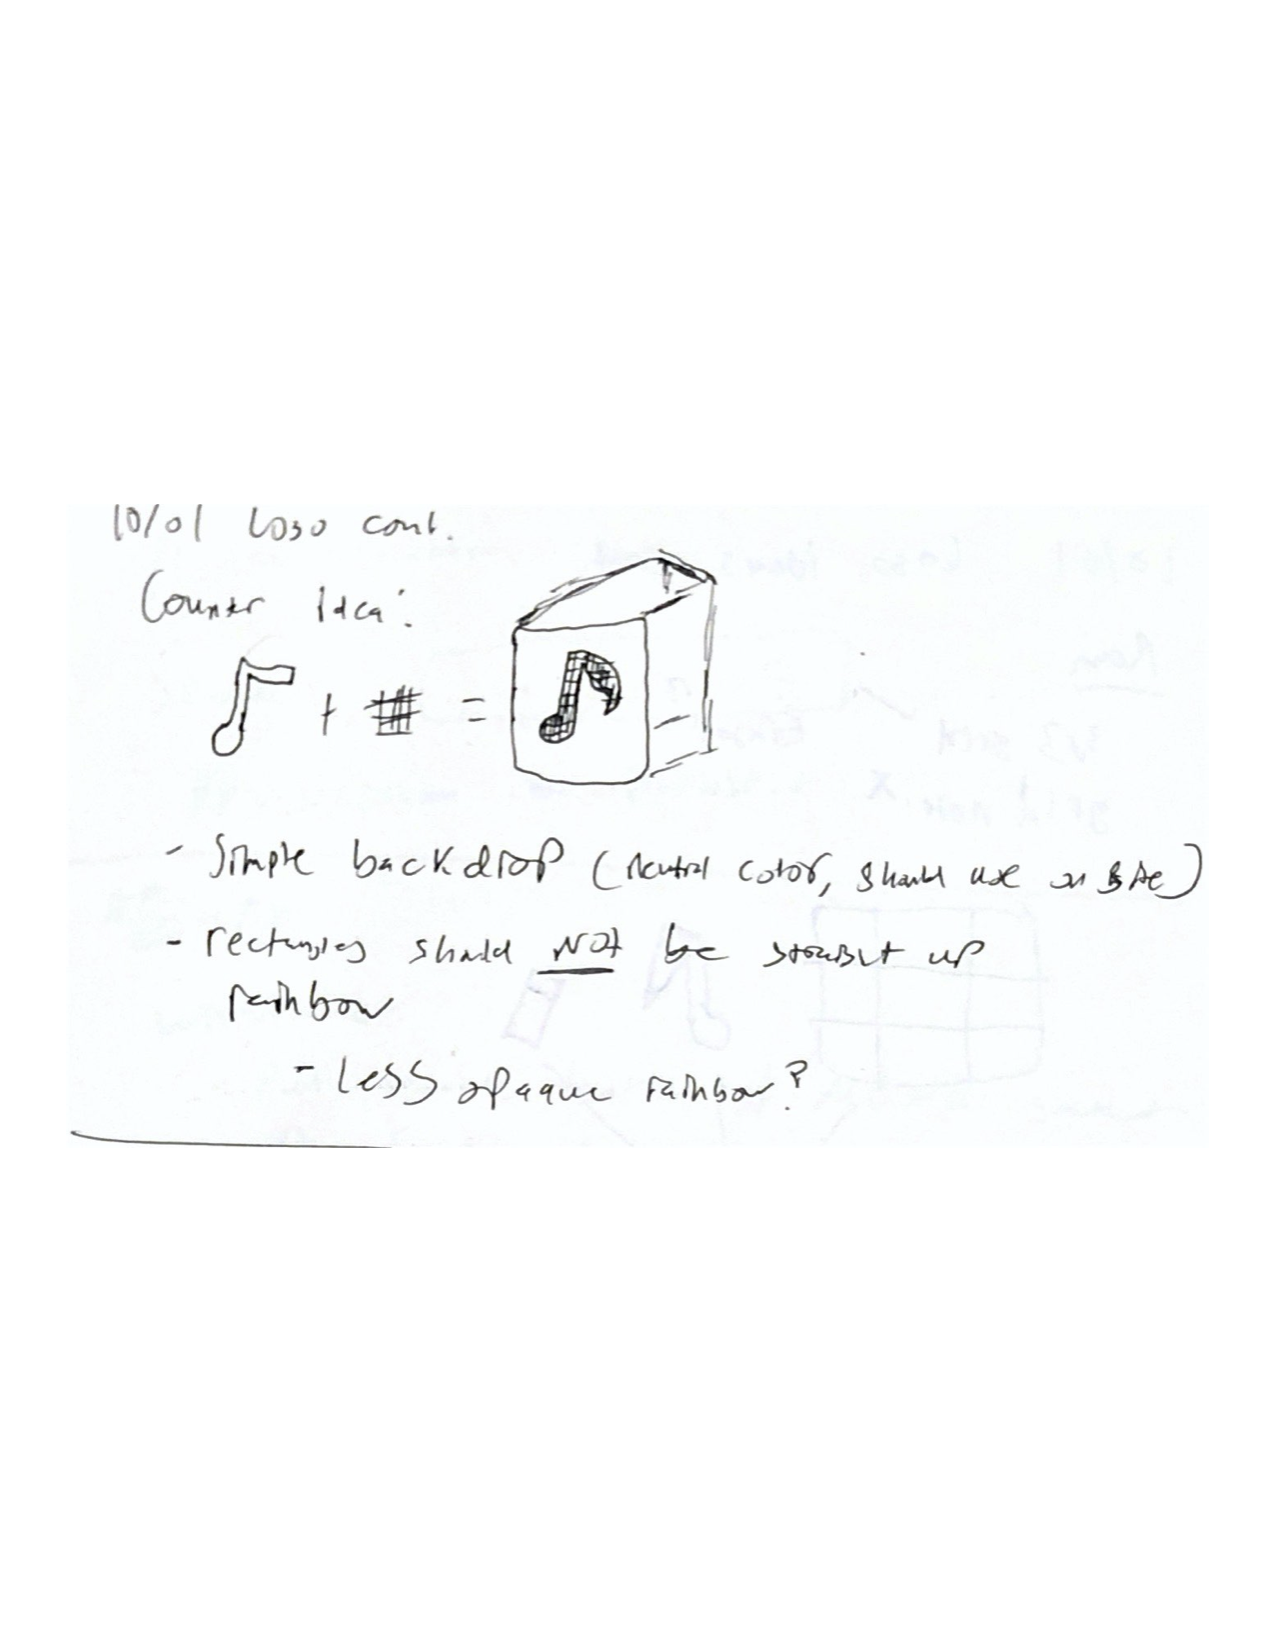 10/01 Logo cont.
Counter Idea:
+ # =
- Simple backdrop (neutral color, should use on site)
- rectangles should NOT be straight up
rainbow
- Less opaque rainbow?